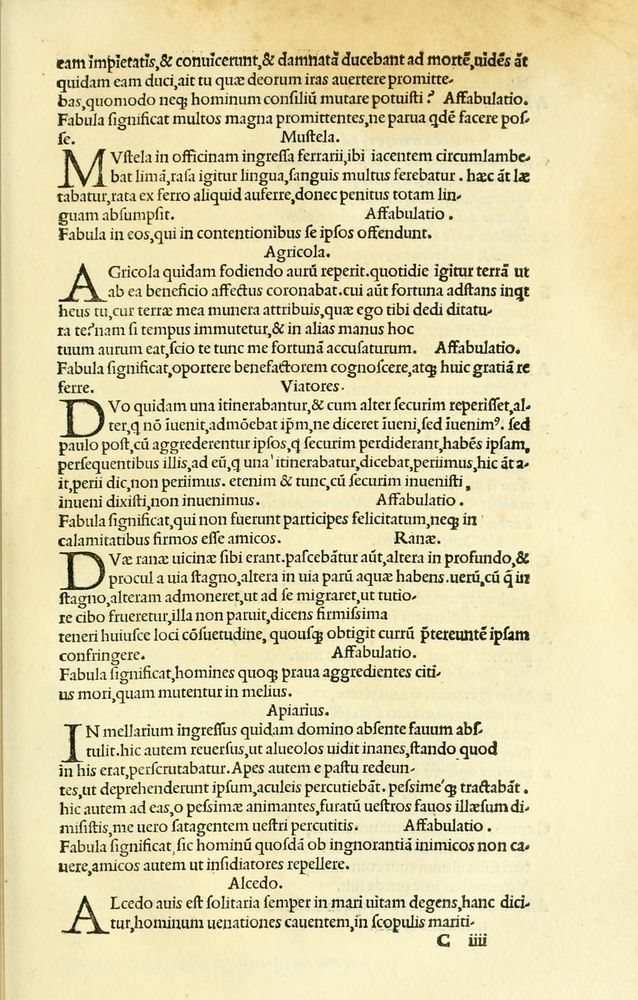 eam īmpietatis,& conuicerunt,& damnatā ducebant ad mortē,uidēs āt
quidam eam duci,ait tu quæ deorum iras auertere promitte-
bas,quomodo neqꝫ hominum consiliū mutare potuisti? Affabulatio.
Fabula significat multos magna promittentes,ne parua qdē facere pos-
se. Mustela.
MVstela in officinam ingressa ferrarii,ibi iacentem circumlambe-
bat limā,rasa igitur lingua,sanguis multus ferebatur. hæc āt læ
tabatur,rata ex ferro aliquid auferre,donec penitus totam lin-
guam absumpsit. Affabulatio.
Fabula in eos,qui in contentionibus se ipsos offendunt.
Agricola.
AGricola quidam fodiendo aurū reperit.quotidie igitur terrā ut
ab ea beneficio affectus coronabat.cui aūt fortuna adstans inqt
heus tu,cur terræ mea munera attribuis,quæ ego tibi dedi ditatu-
ra te?nam si tempus immutetur,& in alias manus hoc
tuum aurum eat,scio te tunc me fortunā accusaturum. Affabulatio.
Fabula significat,oportere benefactorem cognoscere,atqꝫ huic gratiā re
ferre. Viatores.
DVo quidam una itinerabantur,& cum alter securim reperisset,al-
ter,q nō iuenit,admōebat ip̄m,ne diceret īueni,sed īuenimꝰ. sed
paulo post,cū aggrederentur ipsos,q securim perdiderant,habēs ipsam,
persequentibus illis,ad eū,q una itinerabatur,dicebat,periimus,hic āt a-
it,perii dic,non periimus. etenim & tunc,cū securim inuenisti,
inueni dixisti,non inuenimus. Affabulatio.
Fabula significat,qui non fuerunt participes felicitatum,neqꝫ in
calamitatibus firmos esse amicos. Ranæ.
DVæ ranæ uicinæ sibi erant.pascebātur aūt,altera in profundo,&
procul a uia stagno,altera in uia parū aquæ habens.uerū,cū q̄ in
stagno,alteram admoneret,ut ad se migraret,ut tutio-
re cibo frueretur,illa non paruit,dicens firmissima
teneri huiusce loci cōsuetudine, quousqꝫ obtigit currū p̄tereuntē ipsam
confringere. Affabulatio.
Fabula significat,homines quoqꝫ praua aggredientes citi-
us mori,quam mutentur in melius.
Apiarius.
IN mellarium ingressus quidam domino absente fauum abs-
tulit.hic autem reuersus,ut alueolos uidit inanes,stando quod
in his erat,perscrutabatur.Apes autem e pastu redeun-
tes,ut deprehenderunt ipsum,aculeis percutiebāt. pessimeꝗꝫ tractabāt.
hic autem ad eas,o pessimæ animantes,furatū uestros fauos illæsum di-
misistis,me uero satagentem uestri percutitis. Affabulatio.
Fabula significat,sic hominū quosdā ob ingnorantiā inimicos non ca-
uere,amicos autem ut insidiatores repellere.
Alcedo.
ALcedo auis est solitaria semper in mari uitam degens,hanc dici-
tur,hominum uenationes cauentem,in scopulis mariti-
C iiii